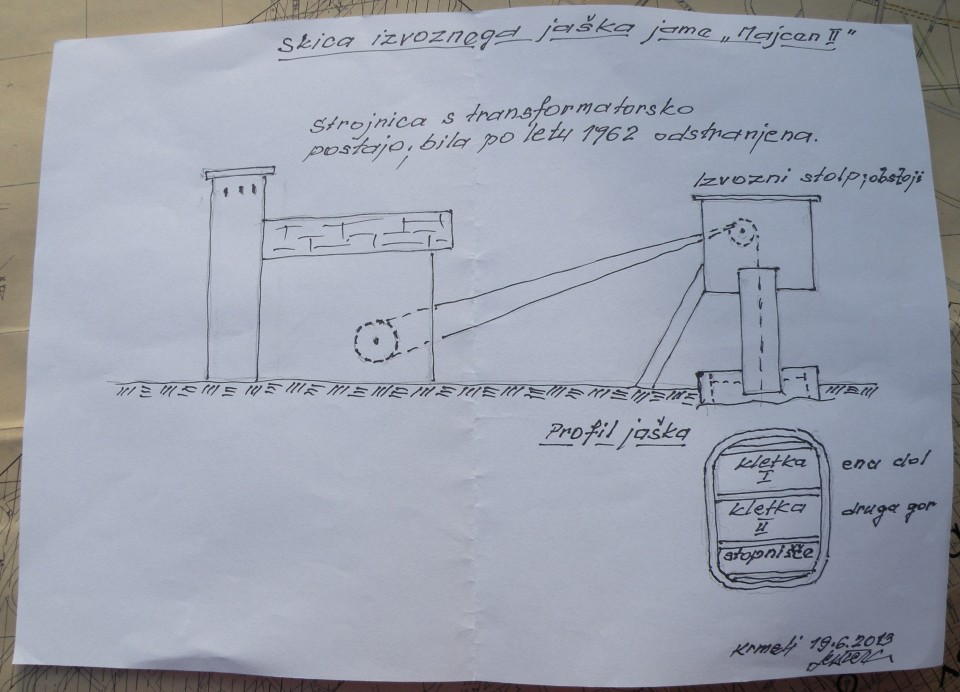 Skica izvoznega jaška jame „Majcen II"
Strojnica s transformatorsko
postajo, bila po letu 1962 odstranjena.
Izvozni stolp, obstoji
Profil jaška
kletka
I
ena dol
kletka
II
druga gor
stopnišče
Krmelj 19.6.2013